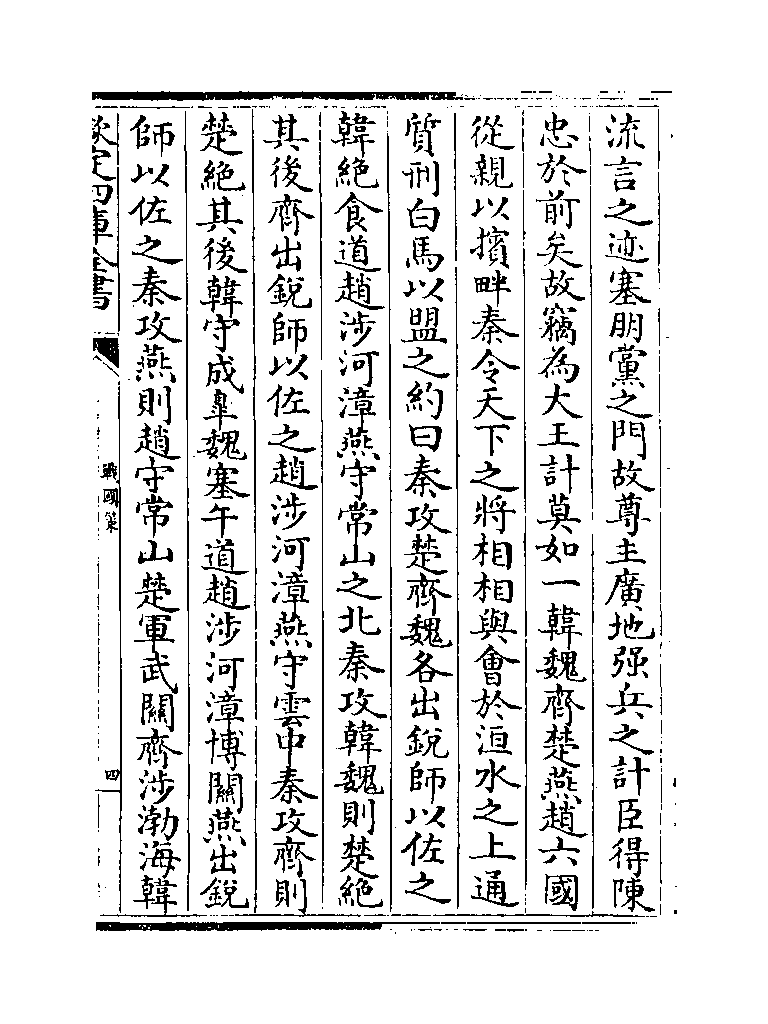 流言之迹塞朋黨之門故尊主廣地强兵之計臣得陳
忠於前矣故竊為大王計莫如一韓魏齊楚燕趙六國
從親以擯畔秦令天下之將相相與會於洹水之上通
質刑白馬以盟之約曰秦攻楚齊魏各出銳師以佐之
韓絶食道趙涉河漳燕守常山之北秦攻韓魏則楚絶
其後齊出銳師以佐之趙涉河漳燕守雲中秦攻齊則
楚絶其後韓守成臯魏塞午道趙涉河漳博關燕出銳
師以佐之秦攻燕則趙守常山楚軍武關齊涉渤海韓
欽定四庫全書
戰國策
四